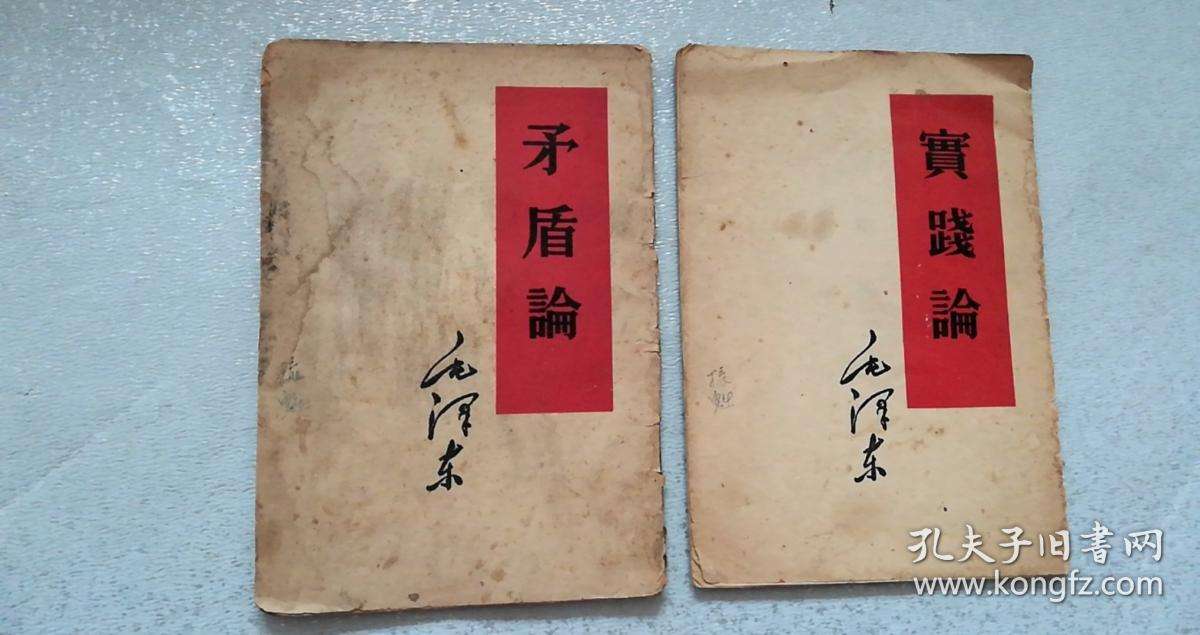 矛盾論
毛泽东
實踐論
毛泽东
孔夫子旧書网
www.kongfz.com